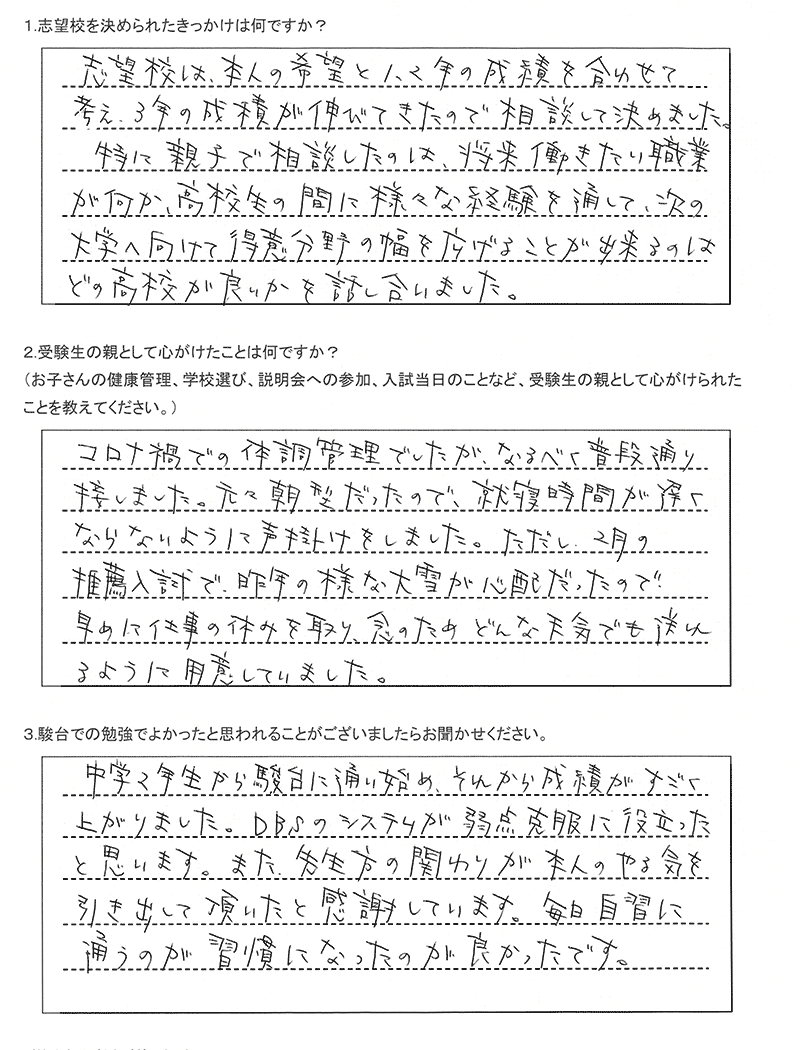 1.志望校を決められたきっかけは何ですか?
志望校は、本人の希望と1、2年の成績を合わせて
考え、3年の成積が伸びてきたので相談して決めました。
特に親子で相談したのは、将来働きたい職業
が何か、高校生の間に様々な経験を通して、次の
大学へ向けて得意分野の幅を広げることが出来るのは
どの高校が良いかを話し合いました。
2.受験生の親として心がけたことは何ですか?
(お子さんの健康管理、学校選び、説明会への参加、入試当日のことなど、受験生の親として心がけられた
ことを教えてください。)
コロナ禍での体調管理でしたが、なるべく普段通り
接しました。元々朝型だったので、就寝時間が遅く
ならないように声掛けをしました。ただし、2月の
推薦入試で、昨年の様な大雪が心配だったので
早めに仕事の休みを取り、念のためどんな天気でも送れ
るように用意していました。
3.駿台での勉強でよかったと思われることがございましたらお聞かせください。
中学2年生から駿台に通い始め、それから成績がすごく
上がりました。DBSのシステムが弱点克服に役立った
と思います。また、先生方の関わりが本人のやる気を
引き出して頂いたと感謝しています。毎日自習に
通うのが習慣になったのが良かったです。